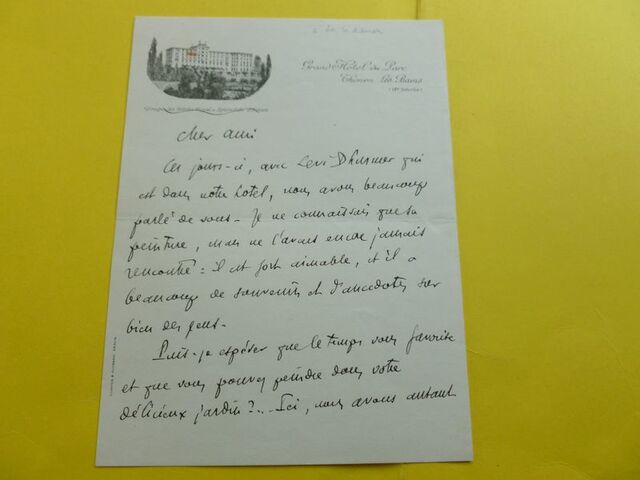 Grand Hôtel du Parc
Thonon les Bains
(Hte Savoie)
Cher ami
Ces jours-ci, avec Levi Dhurmer qui
est dans notre hotel, nous avons beaucoup
parlé de vous - Je ne connaissais que sa
peinture, mais ne l'avais encore jamais
rencontré : il est fort aimable, et il a
beaucoup de souvenirs et d'anecdotes sur
bien des gens -
Puis-je espérer que le temps vous favorise
et que vous pouvez peindre dans votre
délicieux jardin ?... Ici, nous avons autant